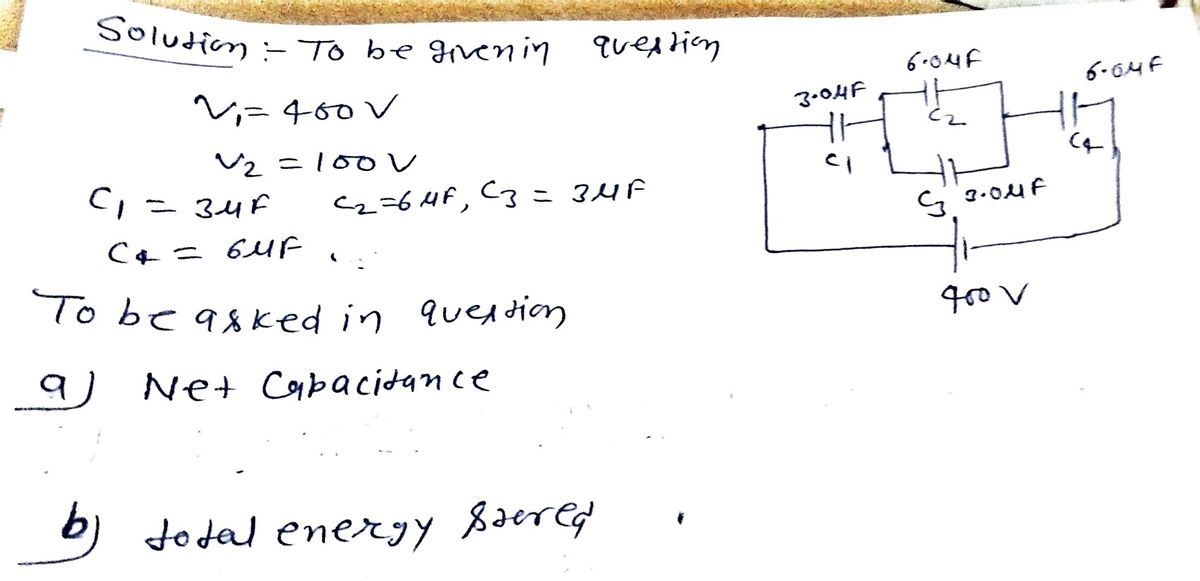 Solution :- To be given in question
V₁ = 400 V
V₂ = 100 V
C₁ = 3μF C₂=6μF, C₃ = 3μF
C₄ = 6μF
To be asked in question
a) Net Capacitance
b) total energy stored
6.0μF
6.0μF
3.0μF
C₂
C₁
C₄
C₃ 3.0μF
400 V